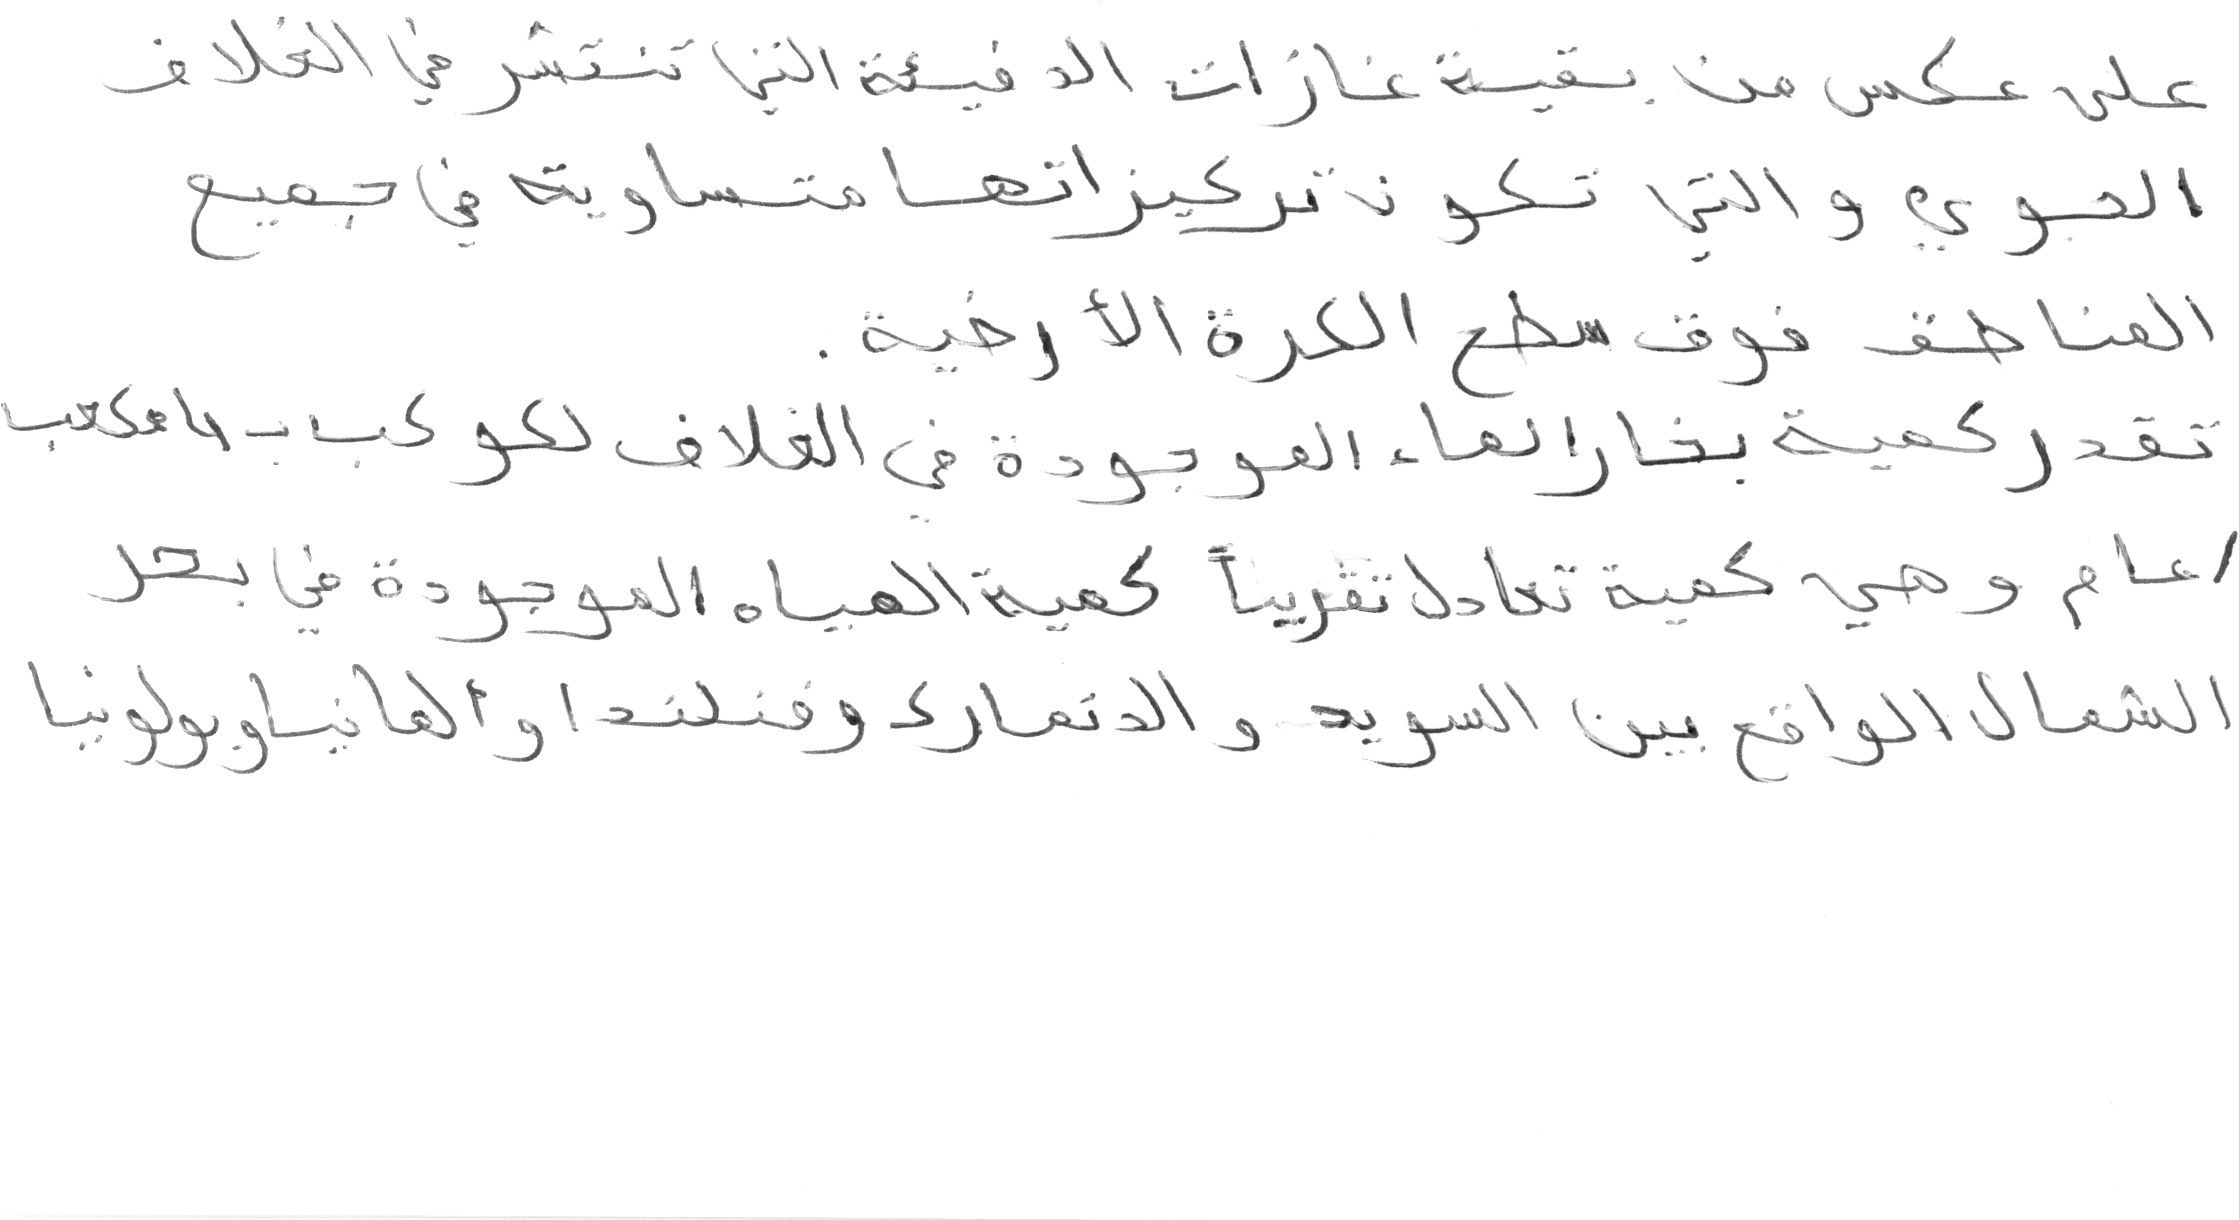 على عكس من بقية غازات الدفيئة التي تنتشر في الغلاف
الجوي والتي تكون تركيزاتها متساوية في جميع
المناطق فوق سطح الكرة الأرضية.
تقدر كمية بخار الماء الموجودة في الغلاف لكوكب بـ مكعب
/عام وهي كمية تعادل تقريباً كمية المياه الموجودة في بحر
الشمال الواقع بين السويد والدنمارك وفنلندا وألمانيا وبولونيا